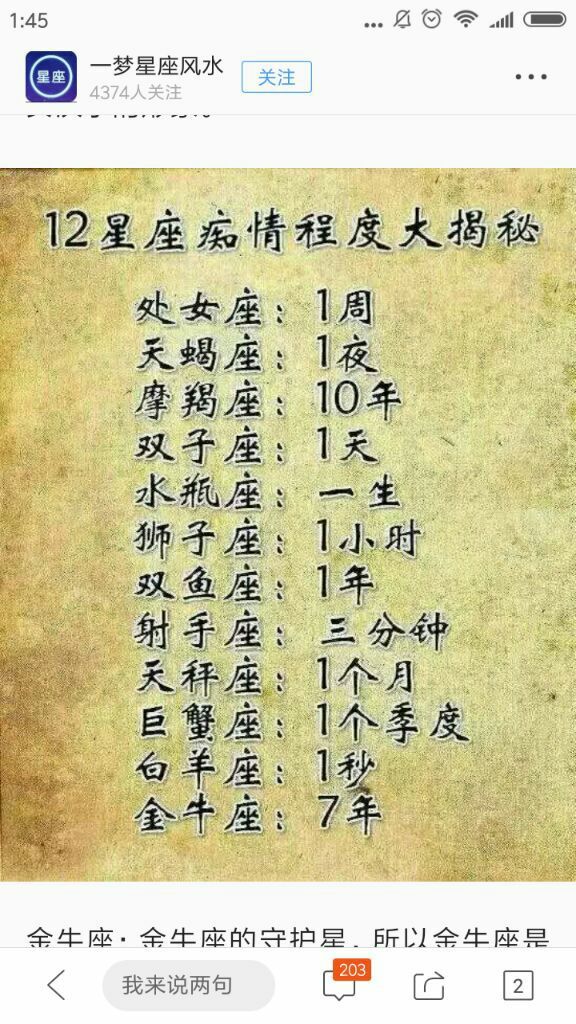 1:45
星座
一梦星座风水
关注
4374人关注
12星座痴情程度大揭秘
处女座：1周
天蝎座：1夜
摩羯座：10年
双子座：1天
水瓶座：一生
狮子座：1小时
双鱼座：1年
射手座：三分钟
天秤座：1个月
巨蟹座：1个季度
白羊座：1秒
金牛座：7年
金牛座：金牛座的守护星，所以金牛座是
我来说两句
203
2